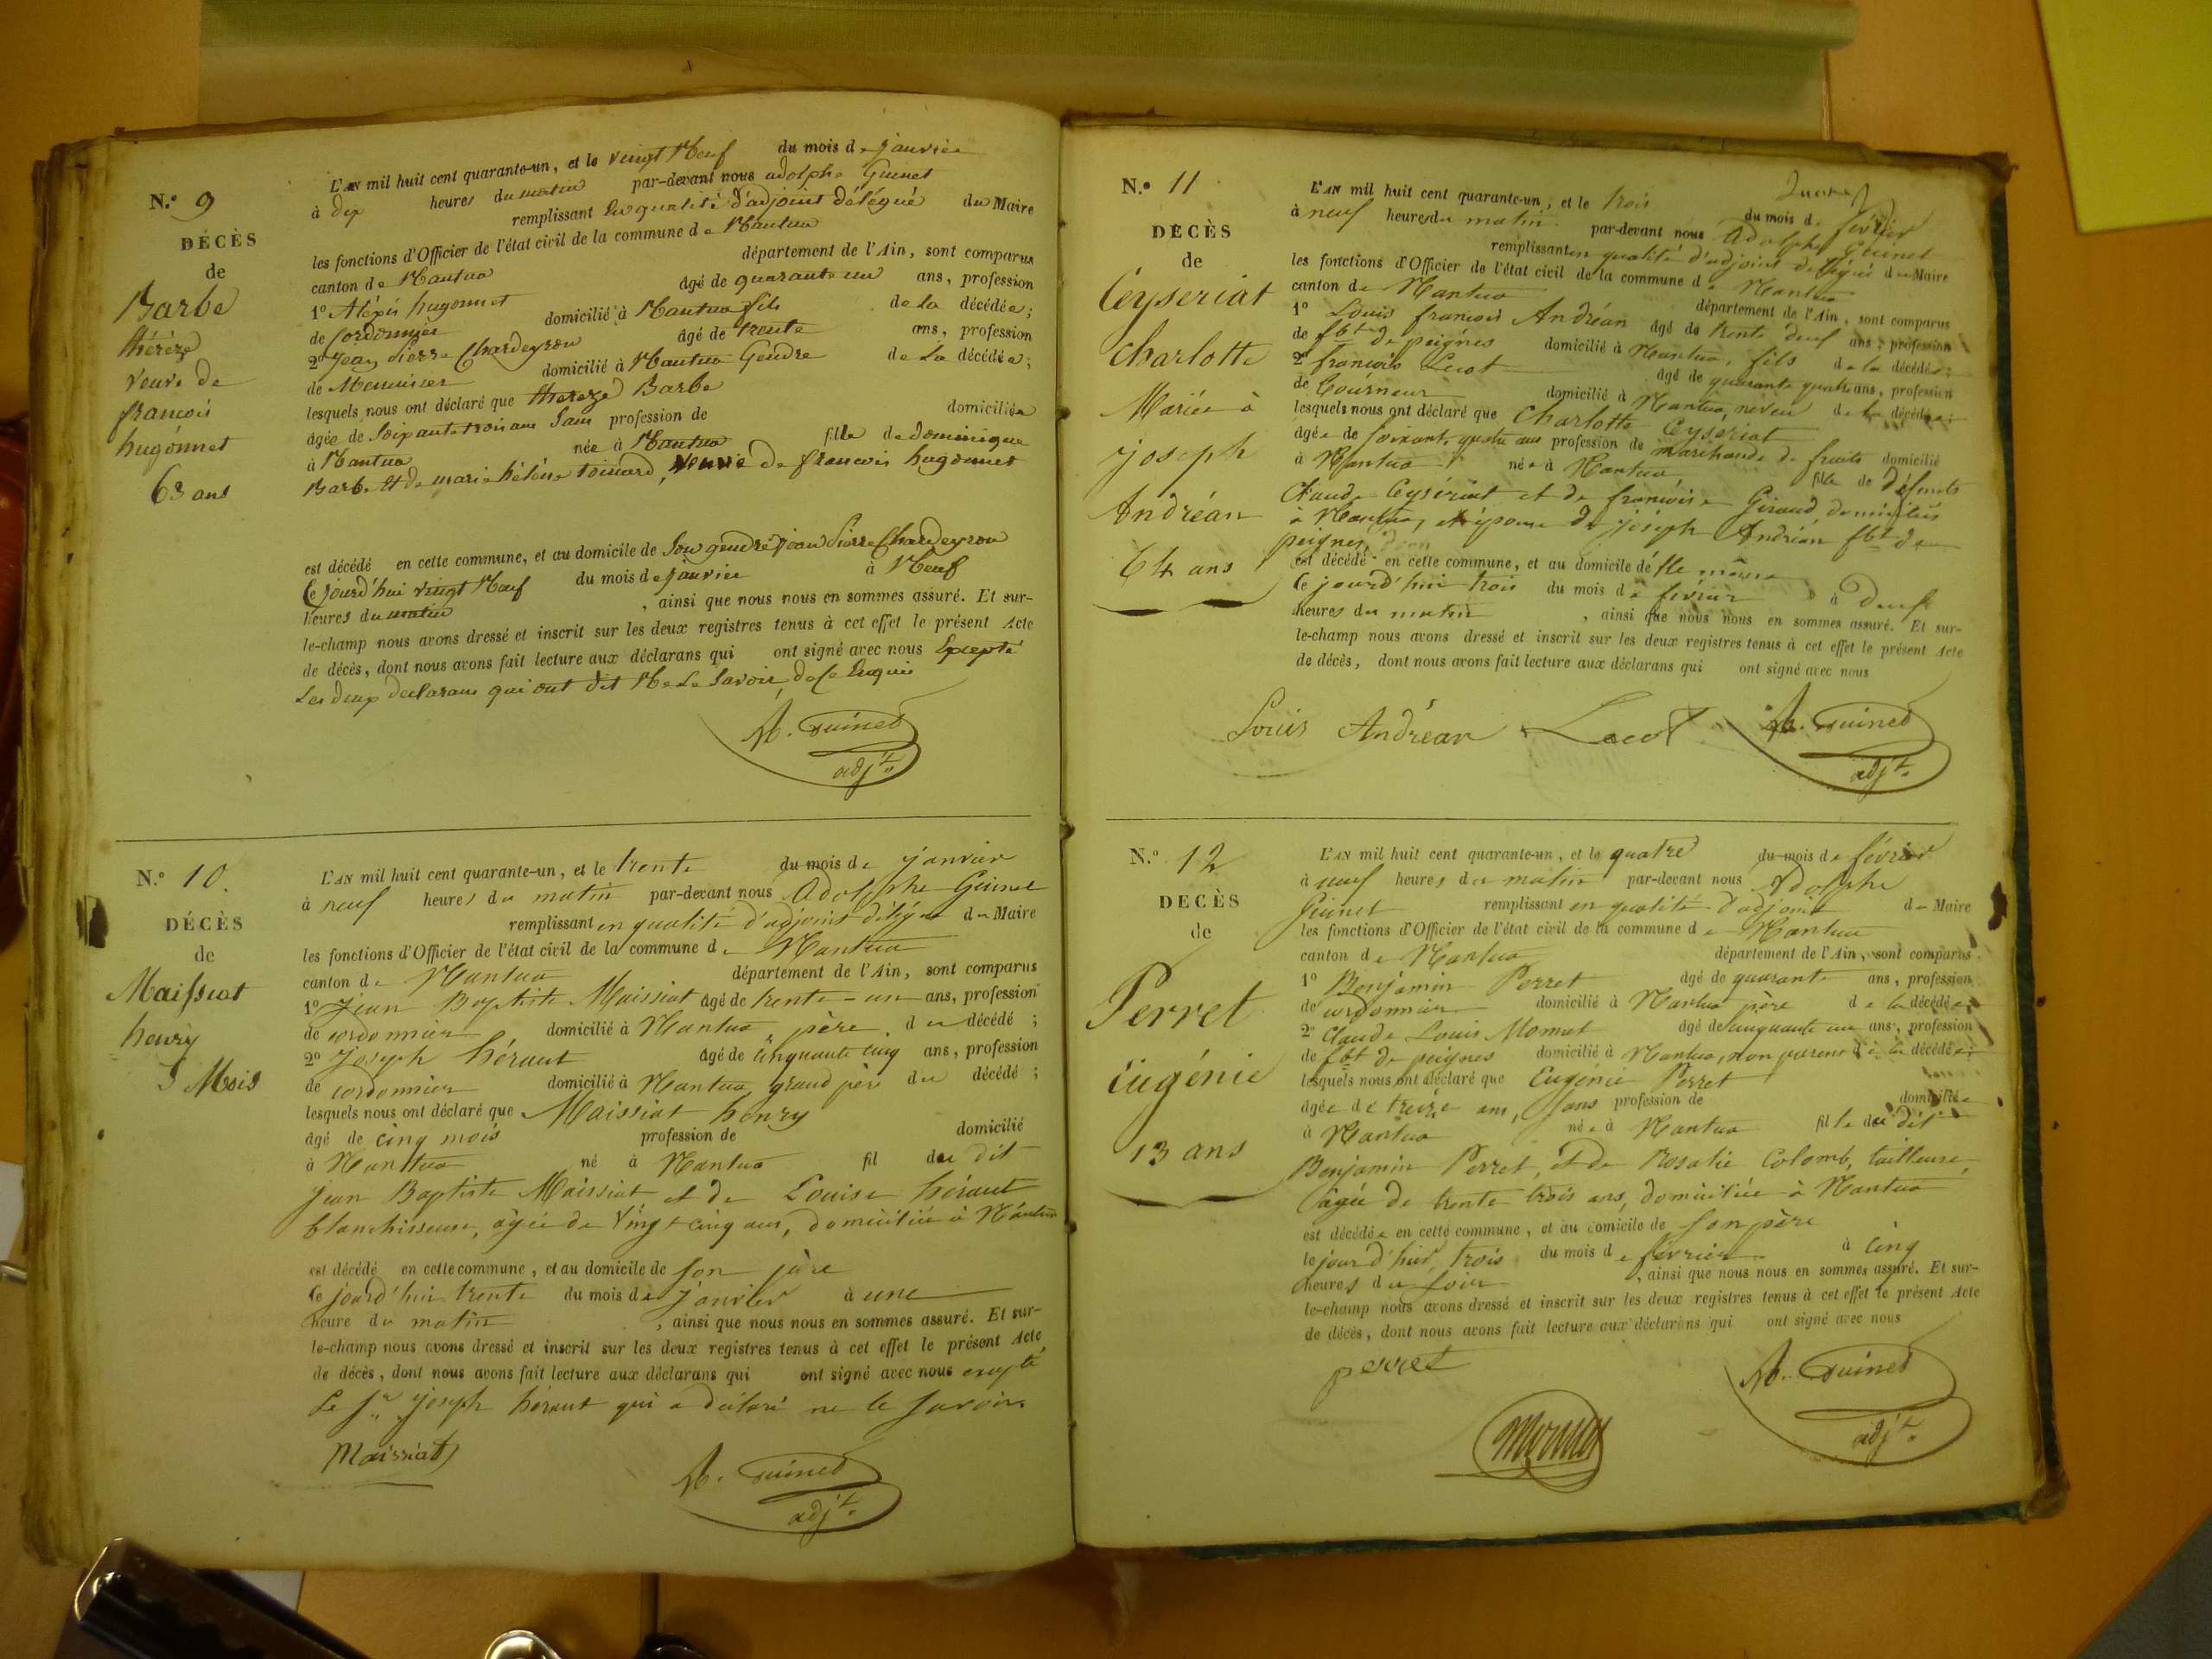 N.° 9
DÉCÈS
de
Barbe
thérèze
veuve de
francois
hugonnet
63 ans
L'AN mil huit cent quarante-un, et le vingt Neuf du mois de janvier
à dix heures du matin par-devant nous adolphe Guinet
remplissant En qualité d'adjoint délégué du Maire
les fonctions d'Officier de l'état civil de la commune de Nantua
canton de Nantua département de l'Ain, sont comparus
1° Aléxis hugonnet âgé de quarante un ans, profession
de Cordonnier domicilié à Nantua fils de la décédée;
2° Jean Pierre Chardeyron âgé de trente ans, profession
de Menuisier domicilié à Nantua Gendre de La décédée;
lesquels nous ont déclaré que thereze Barbe
âgée de Soixante trois ans Sans profession de domiciliée
à Nantua née à Nantua fille de dominique
Barbe et de marie hélène toinard, veuve de francois hugonnet
est décédé en cette commune, et au domicile de Son gendre jean Pierre Chardeyron
Ce jourd'hui vingt Neuf du mois de janvier à Neuf
heures du matin , ainsi que nous nous en sommes assuré. Et sur-
le-champ nous avons dressé et inscrit sur les deux registres tenus à cet effet le présent Acte
de décès, dont nous avons fait lecture aux déclarans qui ont signé avec nous Excepté
Les deux declarans qui ont dit Ne Le Savoir, de ce Enquis
A. Guinet
adj.t
N.° 10.
DÉCÈS
de
Maissiat
henry
5 Mois
L'AN mil huit cent quarante-un, et le trente du mois de janvier
à neuf heures du matin par-devant nous Adolphe Guinet
remplissant en qualité d'adjoint délégué du Maire
les fonctions d'Officier de l'état civil de la commune de Nantua
canton de Nantua département de l'Ain, sont comparus
1° Jean Baptiste Maissiat âgé de trente-un ans, profession
de cordonnier domicilié à Nantua, père, du décédé;
2° Joseph héraut âgé de cinquante cinq ans, profession
de cordonnier domicilié à Nantua grand père du décédé;
lesquels nous ont déclaré que Maissiat henry
âgé de cinq mois profession de domicilié
à Nantua né à Nantua fil du dit
Jean Baptiste Maissiat et de Louise héraut
blanchisseuse, agée de Vingt cinq ans, domiciliée à Nantua
est décédé en cette commune, et au domicile de son père
Ce jourd'hui trente du mois de janvier à une
heure du matin , ainsi que nous nous en sommes assuré. Et sur-
le-champ nous avons dressé et inscrit sur les deux registres tenus à cet effet le présent Acte
de décès, dont nous avons fait lecture aux déclarans qui ont signé avec nous excepté
Le Sr Joseph héraut qui a déclaré ne le savoir.
Maissiat
A. Guinet
adj.t
N.° 11
DÉCÈS
de
Ceyseriat
Charlotte
Mariée à
joseph
Andréan
64 ans
L'AN mil huit cent quarante-un, et le trois du mois de février
à neuf heures du matin par-devant nous Adolphe Guinet
remplissant en qualité d'adjoint délégué du Maire
les fonctions d'Officier de l'état civil de la commune de Nantua
canton de Nantua département de l'Ain, sont comparus
1° Louis francois Andréan âgé de trente neuf ans, profession
de fbt de peignes domicilié à Nantua, fils de la décédée;
2° francois Lecot âgé de quarante quatre ans, profession
de Tourneur domicilié à Nantua, neveu de la décédée;
lesquels nous ont déclaré que Charlotte Ceyseriat
âgée de soixante quatre ans profession de marchande de fruits domicilié
à Nantua née à Nantua fille de défunts
Claude Ceyseriat et de francoise Giraud domiciliés
à Nantua, et épouse de joseph Andréan fbt de
peignes
est décédé en cette commune, et au domicile d'elle même
Ce jourd'hui trois du mois de février à deux
heures du matin , ainsi que nous nous en sommes assuré. Et sur-
le-champ nous avons dressé et inscrit sur les deux registres tenus à cet effet le présent Acte
de décès, dont nous avons fait lecture aux déclarans qui ont signé avec nous
Louis Andréan Lecot A. Guinet
adj.t
N.° 12
DECÈS
de
Perret
Eugénie
13 ans
L'AN mil huit cent quarante-un, et le quatre du mois de février
à neuf heures du matin par-devant nous Adolphe
Guinet remplissant en qualité d'adjoint du Maire
les fonctions d'Officier de l'état civil de la commune de Nantua
canton de Nantua département de l'Ain, sont comparus
1° Benjamin Perret âgé de quarante ans, profession
de cordonnier domicilié à Nantua père de la décédée;
2° Claude Louis Momet âgé de cinquante un ans, profession
de fbt de peignes domicilié à Nantua, non parent de la décédée;
lesquels nous ont déclaré que Eugénie Perret
âgée de treize ans, sans profession de domiciliée
à Nantua née à Nantua fille du dit
Benjamin Perret, et de Rosalie Colomb, tailleuse,
agée de trente trois ans, domiciliée à Nantua
est décédée en cette commune, et au domicile de son père
le jour d'hier, trois du mois de février à cinq
heures du soir , ainsi que nous nous en sommes assuré. Et sur-
le-champ nous avons dressé et inscrit sur les deux registres tenus à cet effet le présent Acte
de décès, dont nous avons fait lecture aux déclarans qui ont signé avec nous
perret
A. Guinet
adj.t